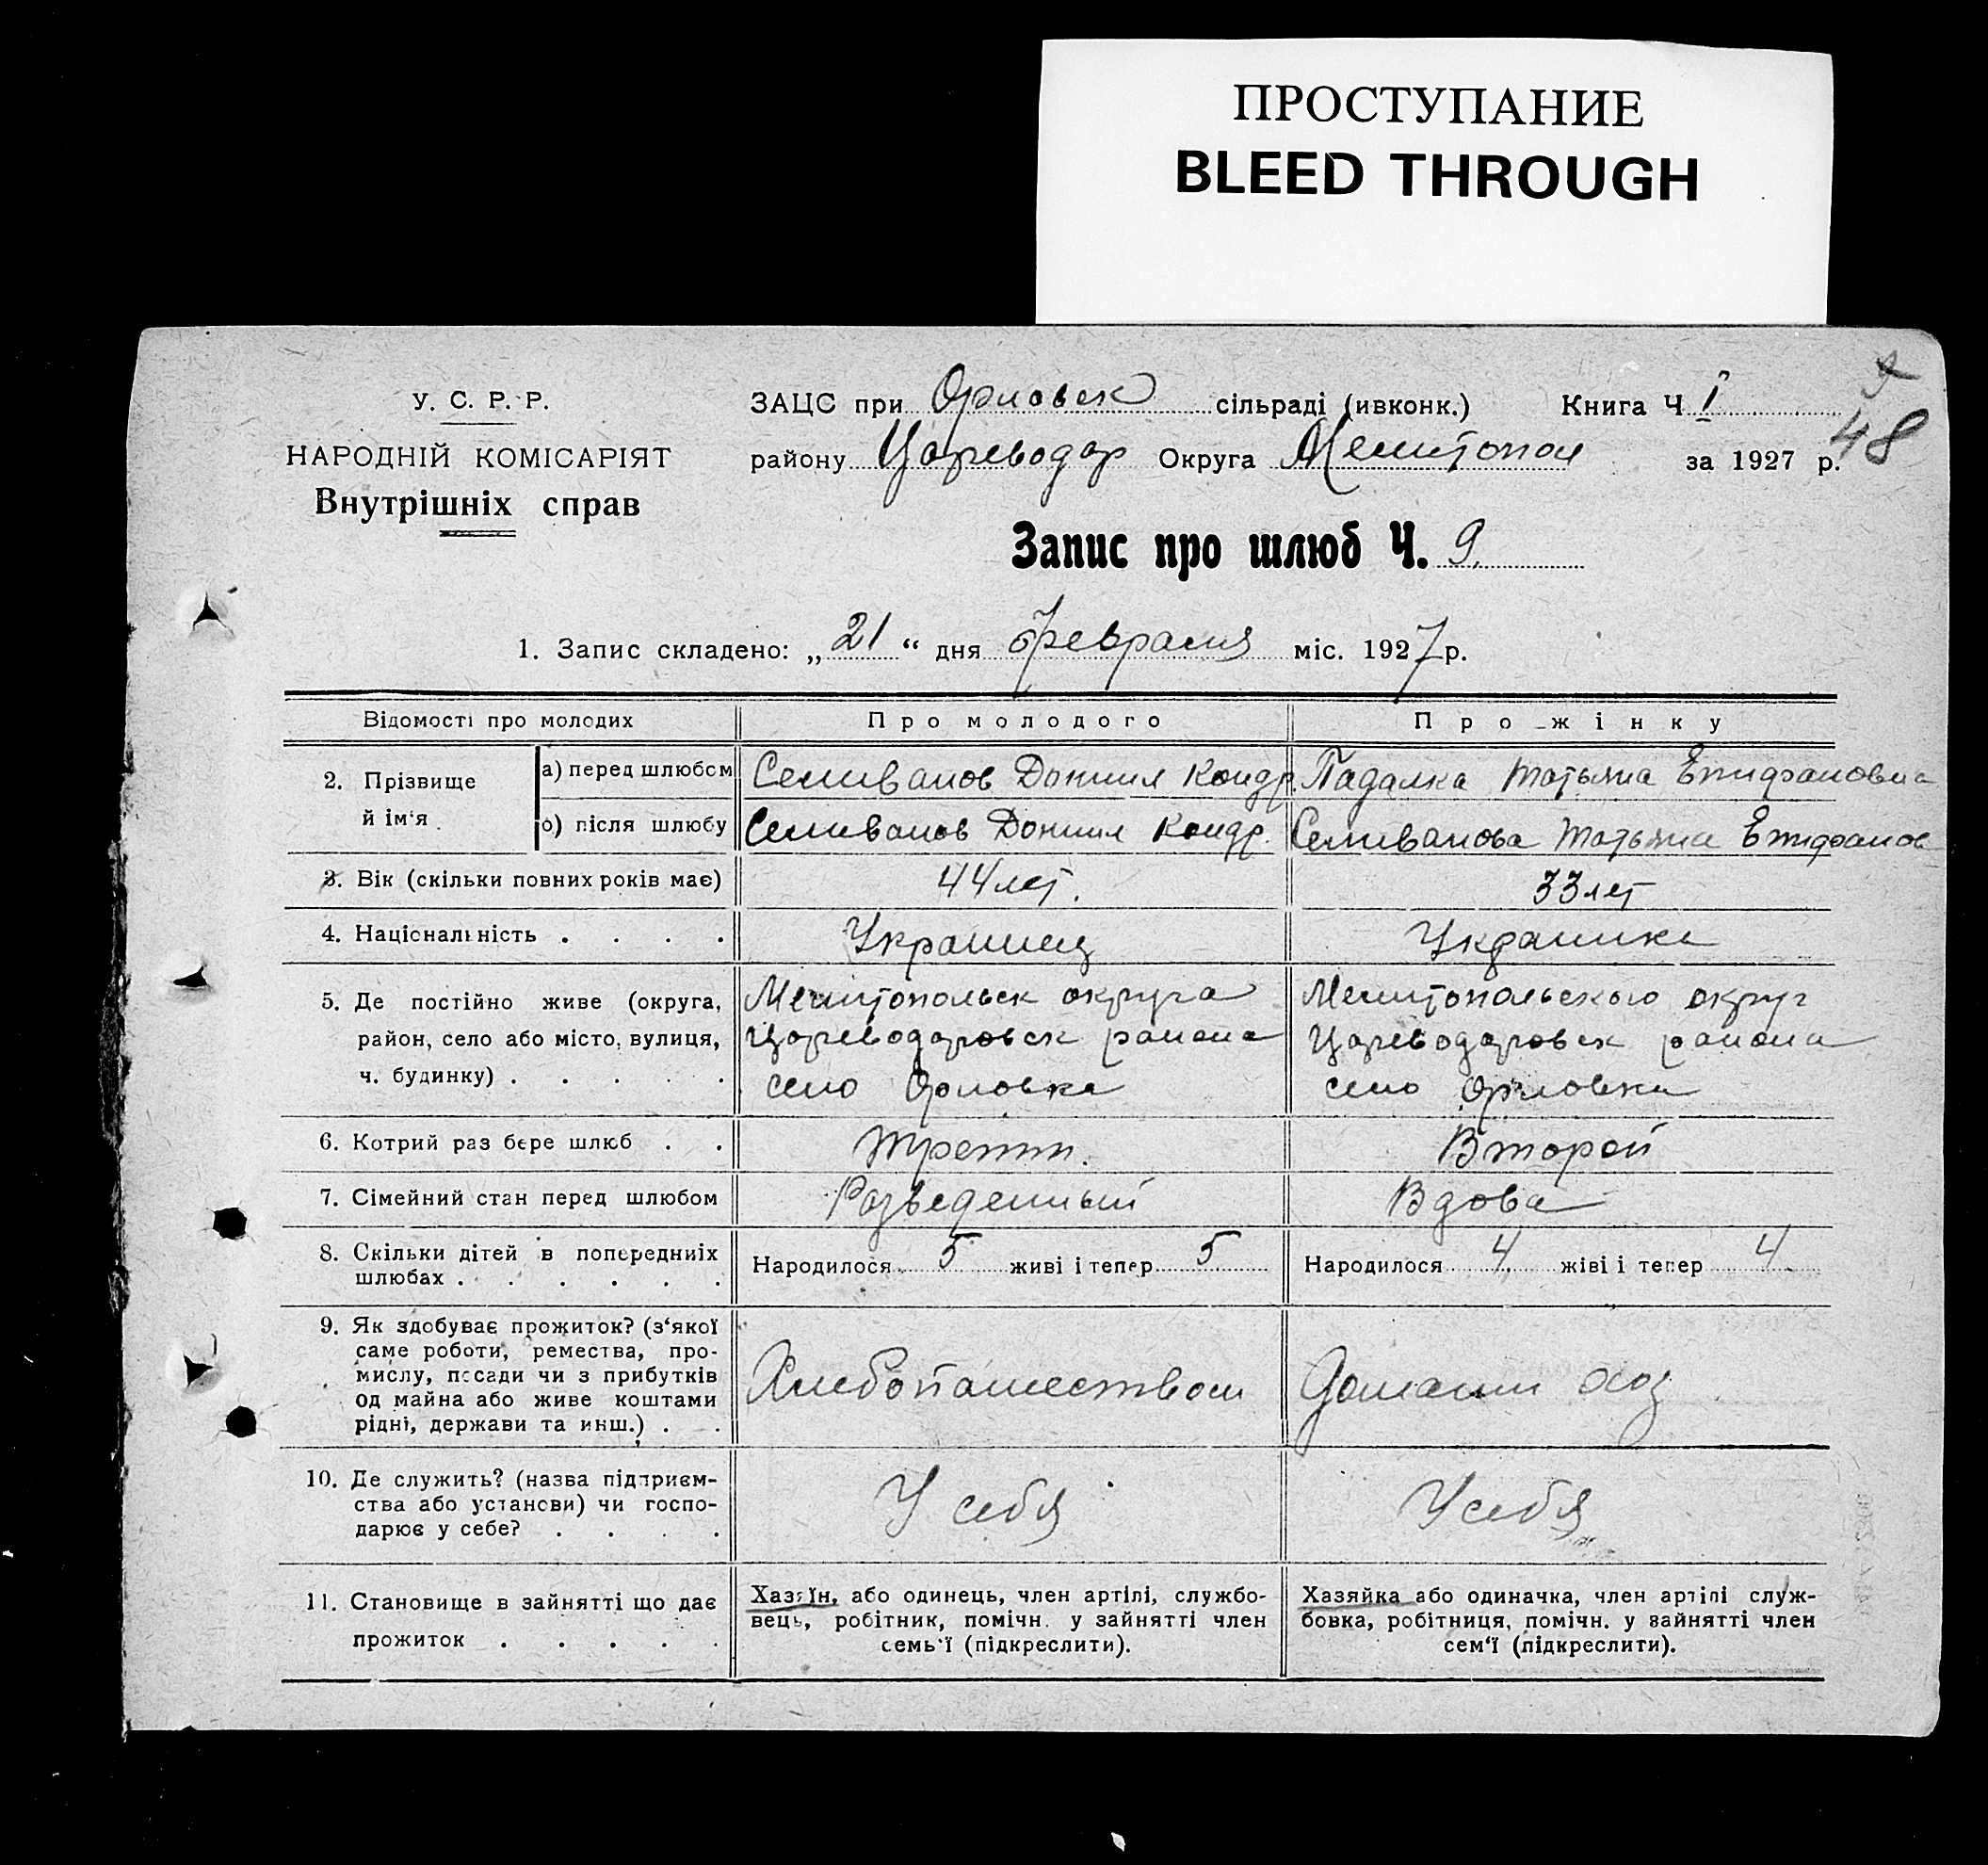 ПРОСТУПАНИЕ
BLEED THROUGH
У. С. Р. Р.
НАРОДНІЙ КОМІСАРІЯТ
Внутрішніх справ
ЗАЦС при Орловск сільраді (ивконк.) Книга Ч I
48
району Цареводар Округа Мелитопол за 1927 р.
Запис про шлюб Ч. 9.
1. Запис складено: „21“ дня февраля міс. 1927 р.
Відомості про молодих Про молодого Про жінку
2. Прізвище й ім'я а) перед шлюбом Селиванов Даниил Кондр. Падалка Татьяна Епифановна
б) після шлюбу Селиванов Даниил Кондр. Селиванова Татьяна Епифанов
3. Вік (скільки повних років має) 44 лет. 33 лет
4. Національність . . . . Украинец Украинка
5. Де постійно живе (округа, Мелитопольск округа Мелитопольского округ
район, село або місто, вулиця, Цареводаровск района Цареводаровск района
ч. будинку) . . . . . село Орловка село Орловка
6. Котрий раз бере шлюб . . Трети. Второй
7. Сімейний стан перед шлюбом Разведенный Вдова
8. Скільки дітей в попередниіх Народилося 5 живі і тепер 5 Народилося 4 жіві і тепер 4
шлюбах . . . . . .
9. Як здобуває прожиток? (з‘якої
саме роботи, ремества, про-
мислу, посади чи з прибутків Хлебопашеством Домашн хоз
од майна або живе коштами
рідні, держави та инш.) . .
10. Де служить? (назва підприєм-
ства або установи) чи госпо- У себя У себя
дарює у себе? . . . .
11. Становище в зайнятті що дає
прожиток . . . . .
Хазяїн, або одинець, член артілі, службо-
вець, робітник, помічн. у зайнятті член
семь‘ї (підкреслити).
Хазяйка або одиначка, член артілі служ-
бовка, робітниця, помічн. у зайнятті член
сем‘ї (підкреслити).